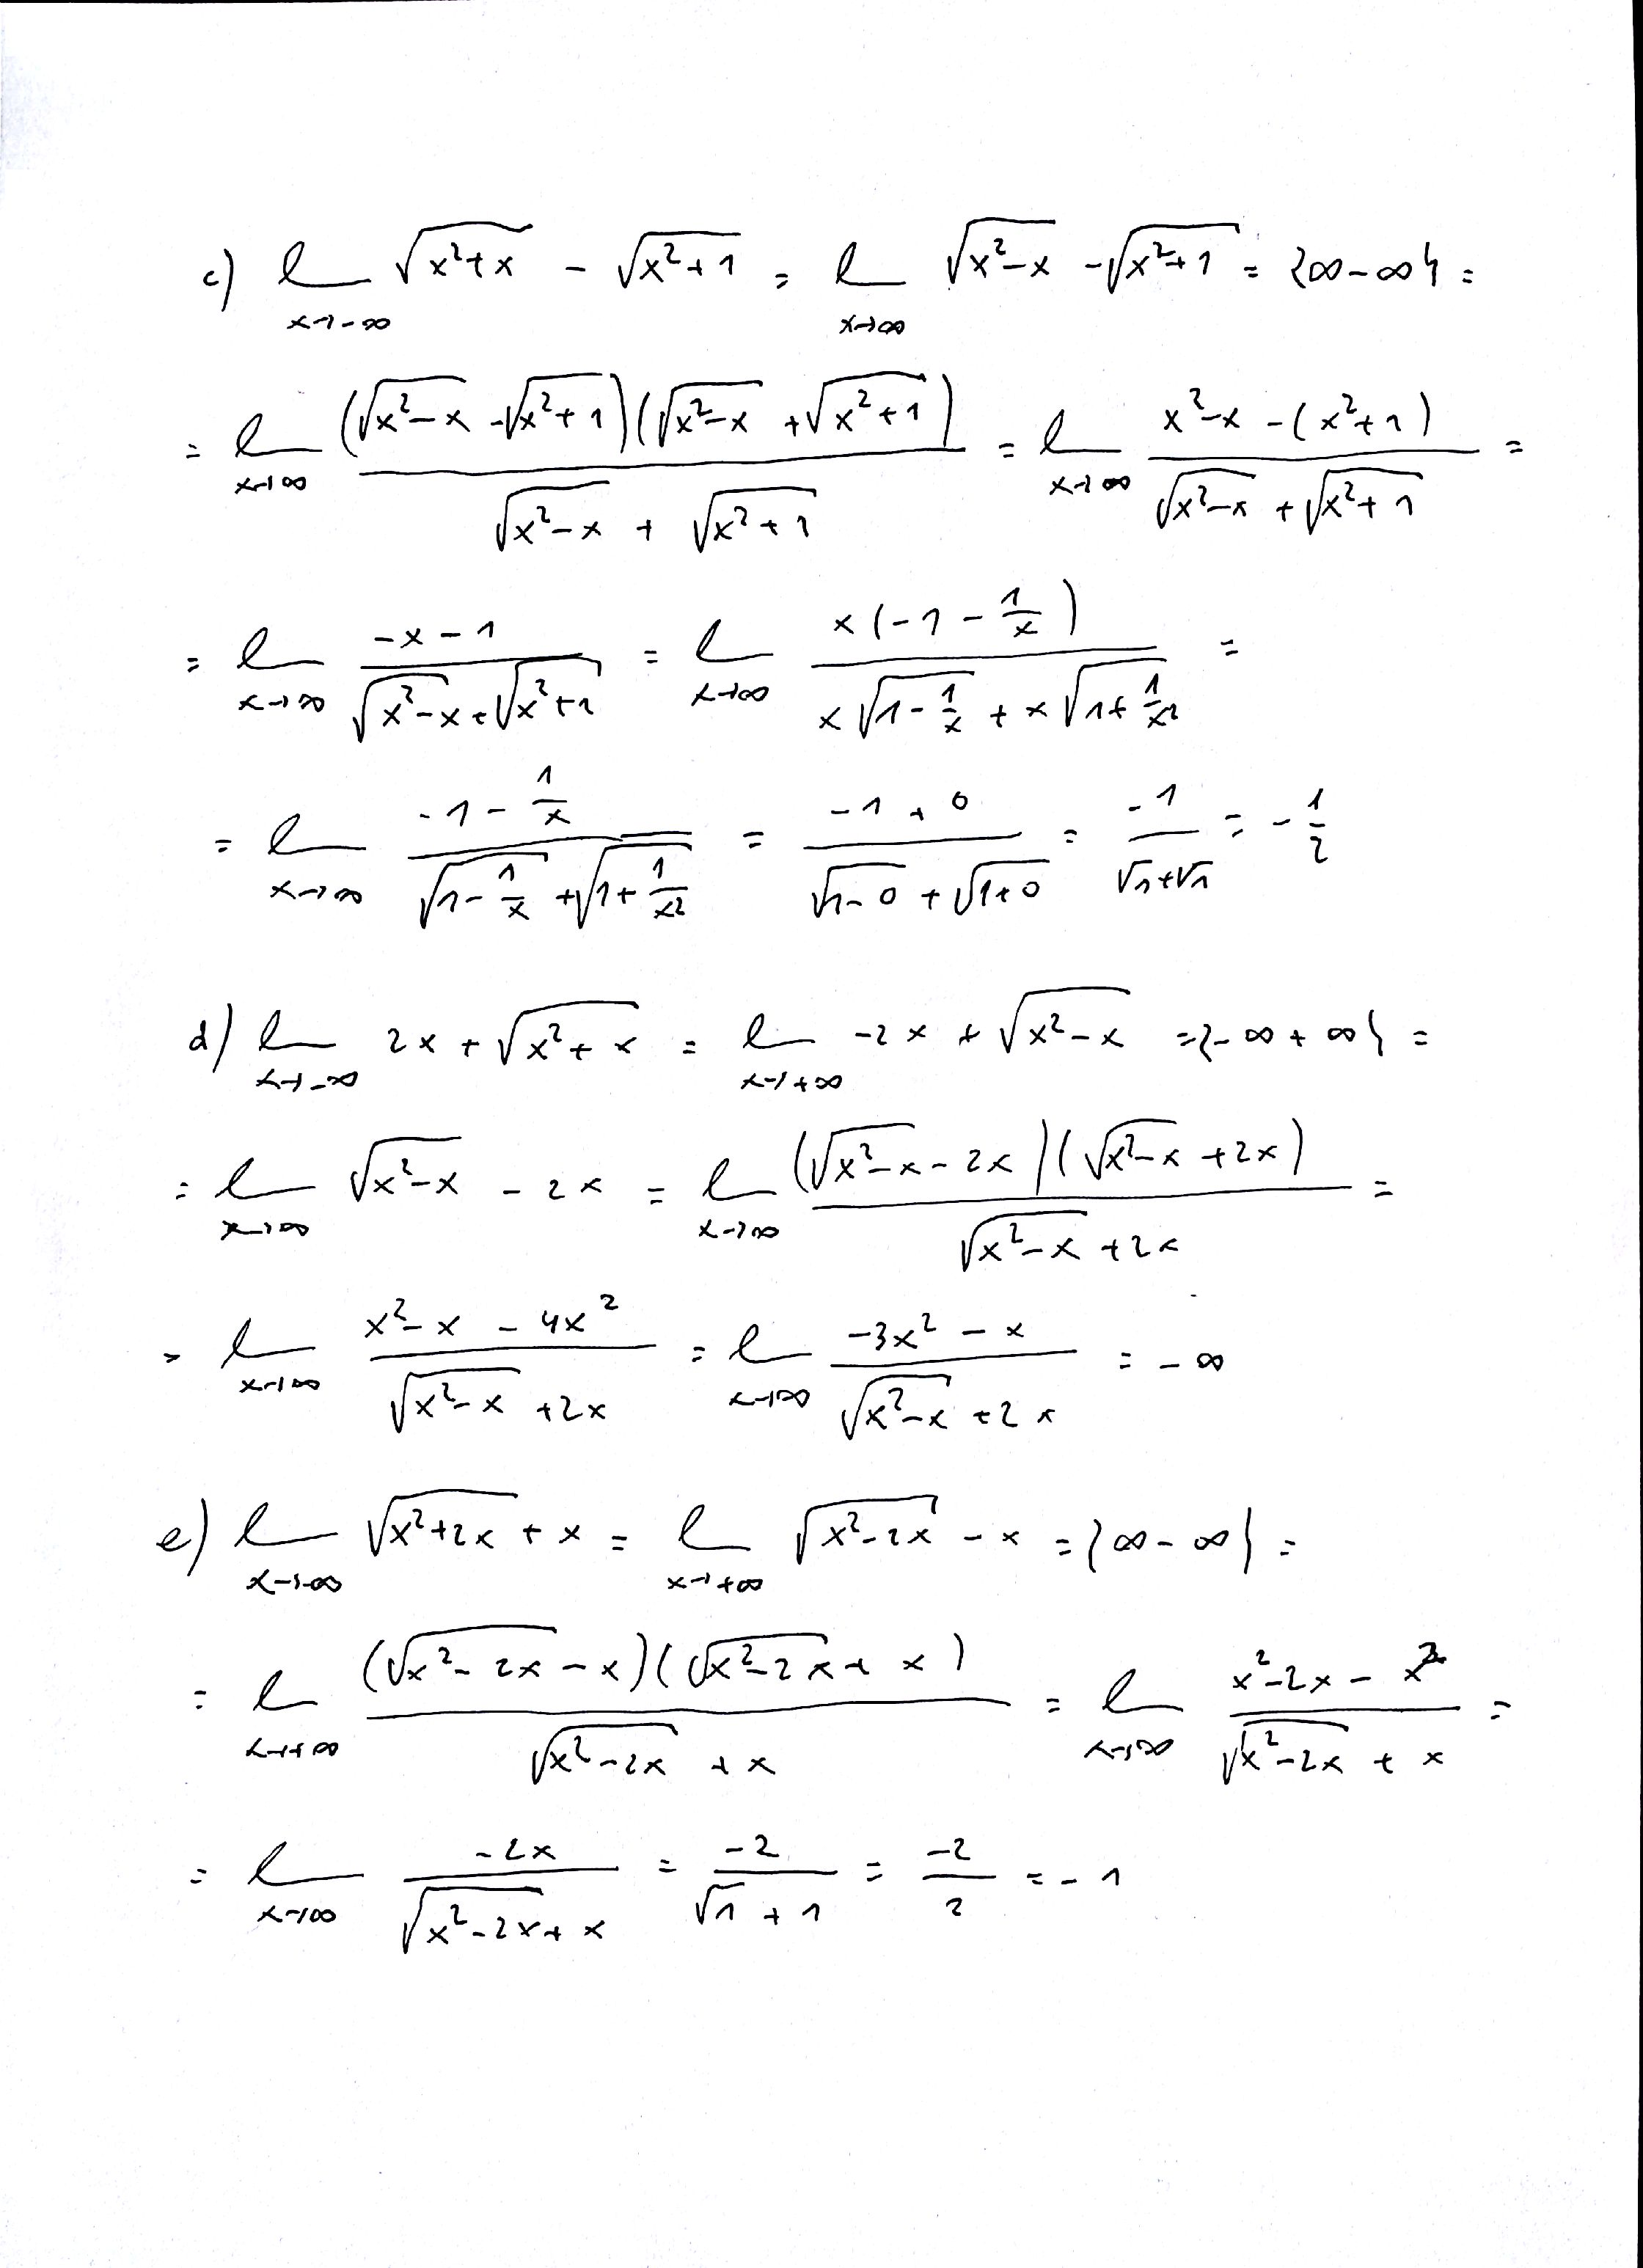 c) lim x→-∞ √(x²+x) - √(x²+1) = lim x→∞ √(x²-x) - √(x²+1) = {∞-∞} =
= lim x→∞ (√(x²-x) - √(x²+1))(√(x²-x) + √(x²+1)) / (√(x²-x) + √(x²+1)) = lim x→∞ (x²-x-(x²+1)) / (√(x²-x) + √(x²+1)) =
= lim x→∞ (-x-1) / (√(x²-x) + √(x²+1)) = lim x→∞ x(-1-1/x) / (x√(1-1/x) + x√(1+1/x²)) =
= lim x→∞ (-1-1/x) / (√(1-1/x) + √(1+1/x²)) = (-1+0) / (√(1-0) + √(1+0)) = -1 / (√1+√1) = -1/2
d) lim x→-∞ 2x + √(x²+x) = lim x→+∞ -2x + √(x²-x) = {-∞+∞} =
= lim x→∞ √(x²-x) - 2x = lim x→∞ (√(x²-x) - 2x)(√(x²-x) + 2x) / (√(x²-x) + 2x) =
= lim x→∞ (x²-x-4x²) / (√(x²-x) + 2x) = lim x→∞ (-3x²-x) / (√(x²-x) + 2x) = -∞
e) lim x→-∞ √(x²+2x) + x = lim x→+∞ √(x²-2x) - x = {∞-∞} =
= lim x→+∞ (√(x²-2x) - x)(√(x²-2x) + x) / (√(x²-2x) + x) = lim x→∞ (x²-2x-x²) / (√(x²-2x) + x) =
= lim x→∞ -2x / (√(x²-2x) + x) = -2 / (√1+1) = -2/2 = -1